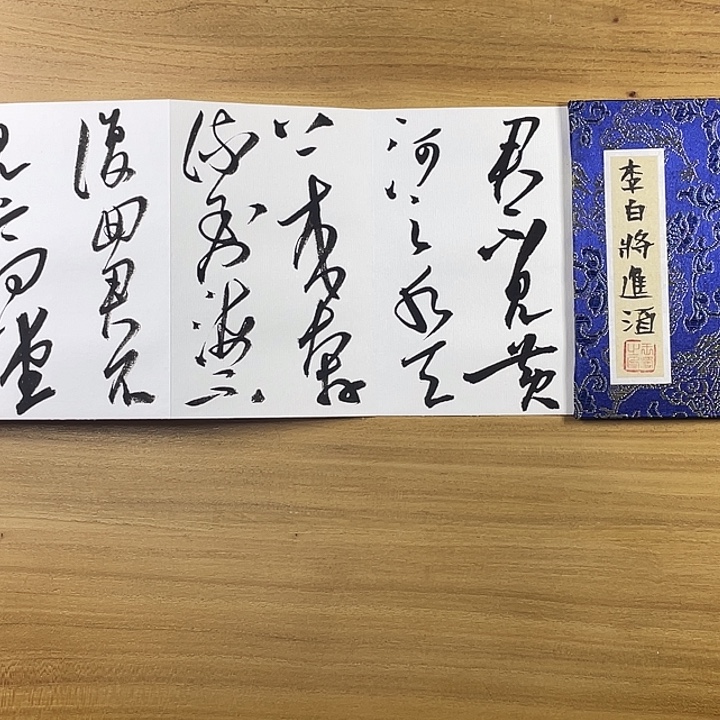 李白將進酒
君不見黃
河之水天
上来奔
流到海不
復回君不
見高堂